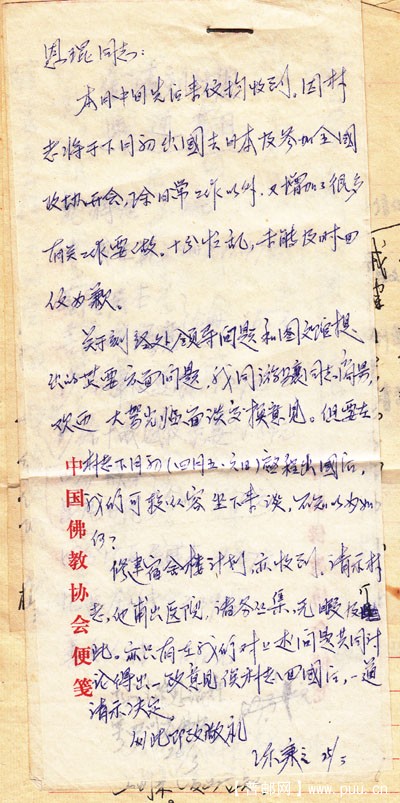 恩琨同志:
本月中旬先后来信均收到。因朴
老将于下月初出国去日本及参加全国
政协开会,除日常工作以外,又增加了很多
有关工作要做。十分忙乱,未能及时回
信为歉。
关于刻经处领导问题和
方面问题,我同游骧同志商量,
欢迎 大驾光临面谈交换意见。但要在
朴老下月初(四月五、六日)启程出国后,
我们可较从容坐下来谈,不知以为如
何?
修建宿舍楼计划亦收到。请示朴
老,他甫出医院,诸务丛集,无暇及
此。亦只有在我们对上述问题共同讨
论得出一致意见俟朴老回国后,一道
请示决定。
匆此即致敬礼
陈秉之 25/3
中国佛教协会便笺
www.puu.cn